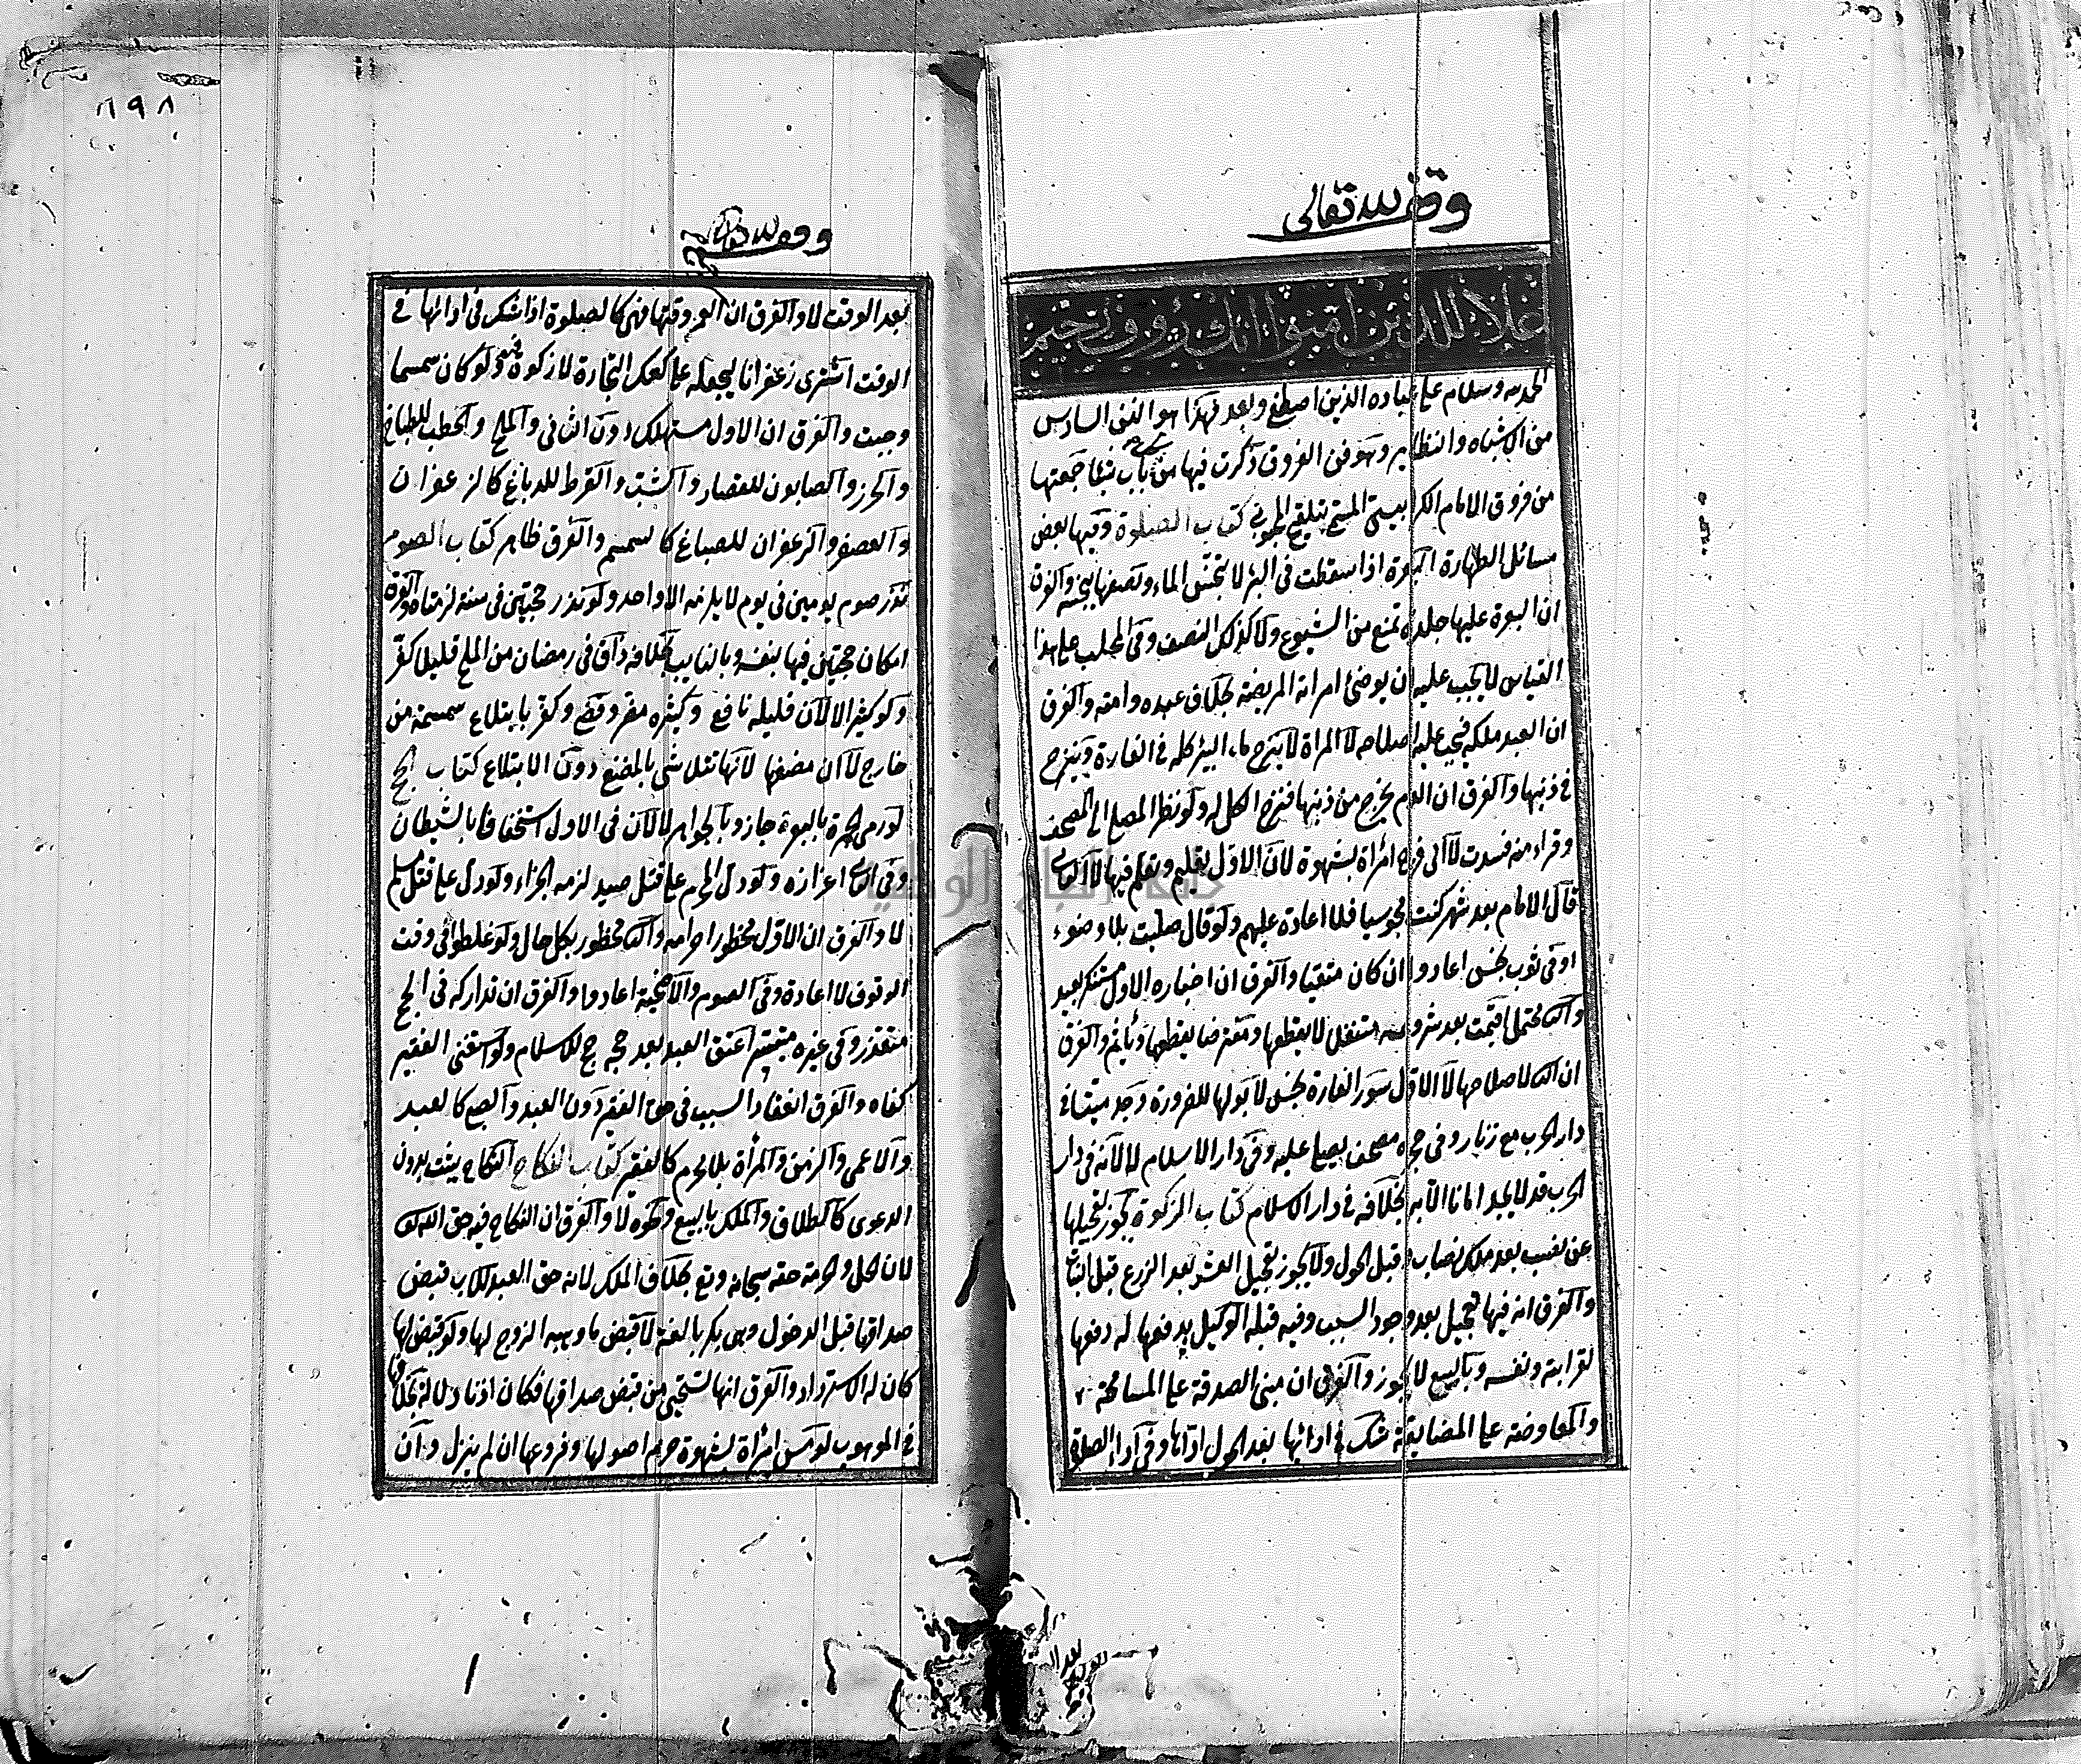 وقف لله تعالى
غلا للذين امنوا انك رؤوف رحيم
الحمد لله وسلام على عباده الذين اصطفى وبعد فهذا هو الفن السادس
من الاشباه والنظاير وهو فن الفروق ذكرت فيها من كل باب شيئا جمعتها
من فروق الامام الكرابيسي المسمى بتلقيح المحبوبي كتاب الصلوة وفيها بعض
مسائل الطهارة البعرة اذا سقطت في البئر لا تنجس الماء ونصفها ينجسه والفرق
ان البعرة عليها جلدة تمنع من الشيوع ولا كذلك النصف وفي المحلب على هذا
القياس لا يجب عليه ان يوضئ امراته المريضة بخلاف عبده وامته والفرق
ان العبد ملكه فيجب عليه اصلاحه لا المراة لا ينزح ماء البئر كله في الفارة وينزح
في ذنبها والفرق ان الدم يخرج من ذنبها فنزح الكل له ولو نظر المصلي الى المصحف
وقراء منه فسدت لا الى فرج امرأة بشهوة لان الاول تعليم وتعلم فيها لا الثاني
قال الامام بعد شهر كنت مجوسيا فلا اعادة عليهم ولو قال صليت بلا وضوء
او في ثوب نجس اعادوا ان كان متقيا والفرق ان اخباره الاول مستنكر بعيد
والثاني محتمل اقيمت بعد شروعه متنفلا لا يقطعها ومفترضا يقطعها ويأثم والفرق
ان الثاني لاصلاحها لا الاول سور الفارة نجس لا بولها للضرورة وجد ميتا في
دار الحرب مع زنار وفي حجره مصحف يصلى عليه وفي دار الاسلام لا لانه في دار
الحرب قد لا يجد امانا الا به بخلافه في دار الاسلام كتاب الزكوة يجوز تعجيلها
عن نصب بعد ملك نصاب وقبل الحول ولا يجوز تعجيل العشر بعد الزرع قبل النبات
والفرق انه فيها تعجيل بعد وجود السبب وفيه قبله الوكيل بدفعها له دفعها
لقرابته ونفسه وبالبيع لا يجوز والفرق ان مبنى الصدقة على المسامحة
والمعاوضة على المضايقة شك في ادائها بعد الحول اداها وفي آداء الصلاة
٦٩٨
وقف لله تعالى
بعد الوقت لا والفرق ان العمر وقتها فهي كالصلوة اذا شكر في ادائها في
الوقت اشترى زعفرانا ليجعله على كعك التجارة لا زكوة فيه ولو كان سمسما
وجبت والفرق ان الاول مستهلك دون الثاني والملح والحطب للطباخ
والحرز والصابون للقصار والشب والقرظ للدباغ كالزعفران
والعصفر والزعفران للصباغ كالسمسم والفرق ظاهر كتاب الصوم
نذر صوم يومين في يوم لا يلزمه الا واحد ولو نذر حجتين في سنة لزمتاه والفرق
امكان حجتين فيها بنفسه وبالنايب بخلافه ذاق في رمضان من الملح قليلا كفر
ولو كثيرا لا لان قليله نافع وكثيره مضر وقضى وكفر بابتلاع سمسمة من
خارج لا ان مضغها لانها تتلاشى بالمضغ دون الابتلاع كتاب الحج
لو رمى الجمرة بالبعرة جاز وبالجواهر لا لان في الاول استخفافا بالشيطان
وفي الثاني اعزازه ولو دل المحرم على قتل صيد لزمه الجزاء ولو دل على قتل مسلم
لا والفرق ان الاول محظور احرامه والثاني محظور بكل حال ولو غلطوا في وقت
الوقوف لا اعادة وفي الصوم والاضحية اعادوا والفرق ان تداركه في الحج
متعذر وفي غيره متيسر اعتق العبد بعد حجه حج للاسلام ولو استغنى الفقير
كفاه والفرق انعقاد السبب في حق الفقير دون العبد والصبي كالعبد
والاعمى والزمن والمرأة بلا محرم كالفقير كتاب النكاح النكاح يثبت بدون
الدعوى كالطلاق والملك بالبيع ونحوه لا والفرق ان النكاح فيه حق الله تعالى
لان الحل والحرمة حقه سبحانه وتع بخلاف الملك لانه حق العبد للاب قبض
صداقها قبل الدخول وهي بكر بالغة لا قبض ما وهبه الزوج لها ولو قبض لها
كان له الاسترداد والفرق انها تستحيي من قبض صداقها فكان اذنا دلالة بخلافها
في الموهوب لو مس امرأة بشهوة حرم اصولها وفروعها ان لم ينزل وان